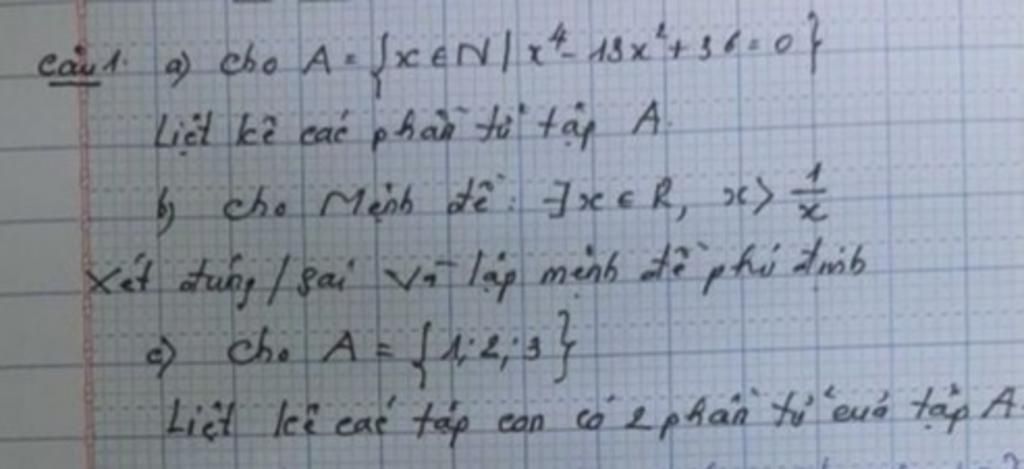 Câu 1. a) Cho A = {x ∈ N | x⁴ - 13x² + 36 = 0}
Liệt kê các phần tử tập A.
b) Cho Mệnh đề : ∃x ∈ R, x > 1/x
Xét đúng / sai và lập mệnh đề phủ định
c) Cho A = {1; 2; 3}
Liệt kê các tập con có 2 phần tử của tập A.